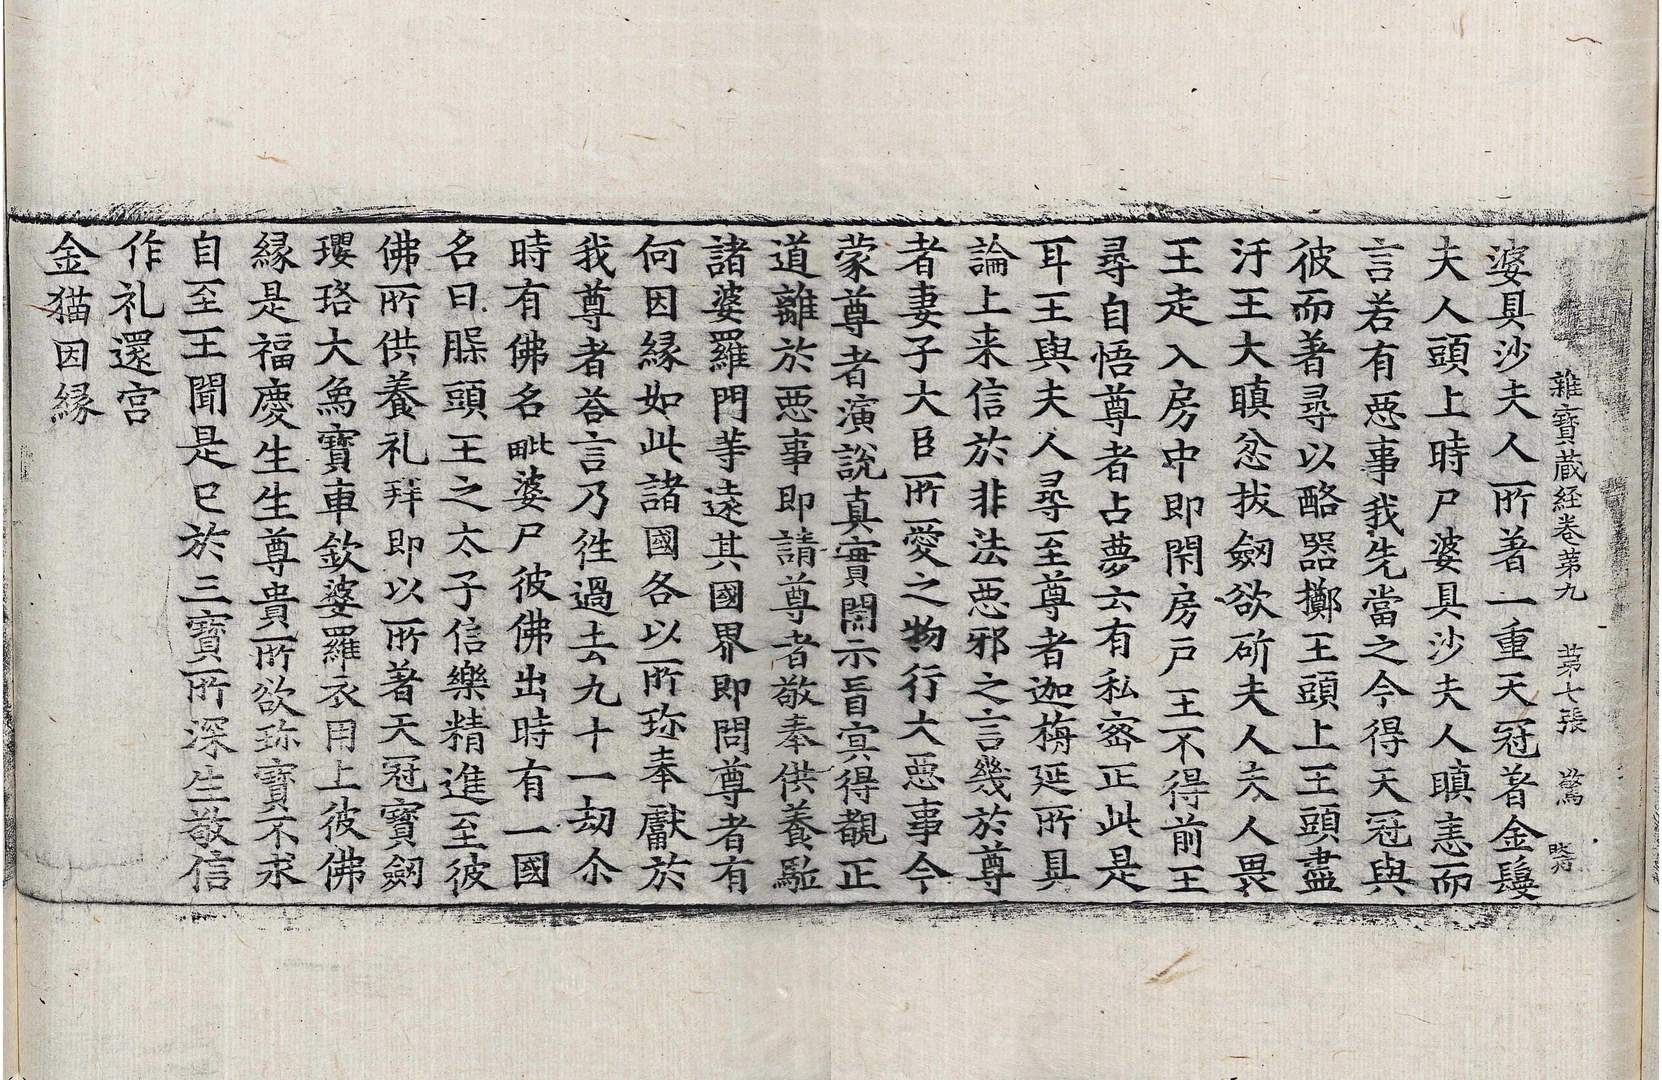 雜寶蔵経卷苐九 苐七張 驚
婆具沙夫人所著一重天冠著金鬘
夫人頭上時尸婆具沙夫人瞋恚而
言若有惡事我先當之今得天冠與
彼而著尋以酪器擲王頭上王頭盡
汙王大瞋忿拔劒欲斫夫人夫人畏
王走入房中即閇房戶王不得前王
尋自悟尊者占夢云有私密正此是
耳王與夫人尋至尊者迦栴延所具
論上来信於非法惡邪之言幾於尊
者妻子大臣所愛之物行大惡事今
蒙尊者演說真實開示盲冥得覩正
道離於惡事即請尊者敬奉供養駈
諸婆羅門等遠其國界即問尊者有
何因縁如此諸國各以所珎奉獻於
我尊者荅言乃徃過去九十一劫尒
時有佛名毗婆尸彼佛出時有一國
名曰䐗頭王之太子信樂精進至彼
佛所供養礼拜即以所著天冠寶劒
瓔珞大象寶車欽婆羅衣用上彼佛
縁是福慶生生尊貴所欲珎寶不求
自至王聞是已於三寶所深生敬信
作礼還宫
金猫因縁